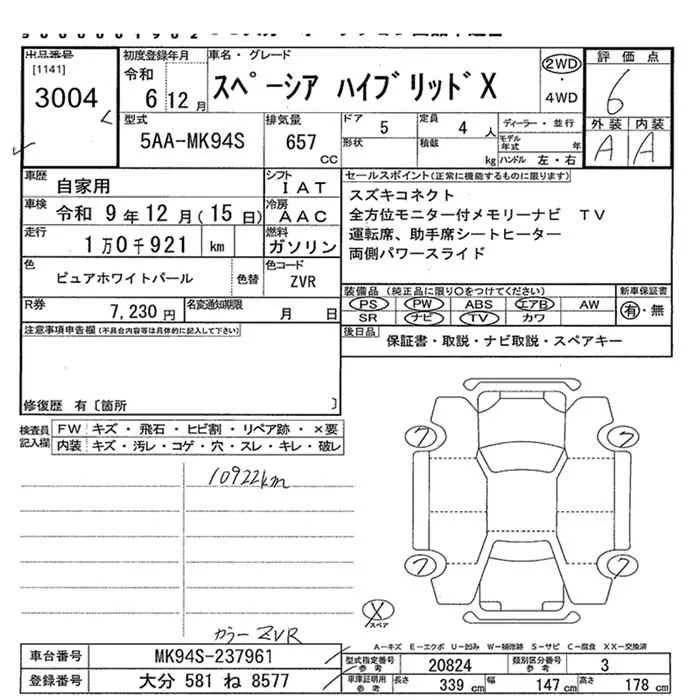 出品番号
[1141]
3004
初度登録年月
令和
6 12月
車名・グレード
スペーシア ハイブリッドX
2WD
・
4WD
評価点
6
外装 内装
A A
型式
5AA-MK94S
排気量
657
CC
ドア 5
形状
定員 4 人
積載 kg
ディーラー・並行
モデル年式 年
ハンドル 左・右
車歴
自家用
シフト
IAT
車検 令和 9年12月(15日)
冷房
AAC
走行
1万0千921 km
燃料
ガソリン
色
ピュアホワイトパール
色替
色コード
ZVR
R券
7,230円
名変通知期限
月 日
セールスポイント(正常に機能するものに限ります)
スズキコネクト
全方位モニター付メモリーナビ TV
運転席、助手席シートヒーター
両側パワースライド
装備品(純正品に限り○をつけてください)
新車保証書
PS PW ABS エアB AW
SR ナビ TV カワ
有・無
後日品
保証書・取説・ナビ取説・スペアキー
注意事項申告欄(不具合内容等は具体的に記入して下さい)
修復歴 有〔箇所 〕
検査員記入欄
FW キズ・飛石・ヒビ割・リペア跡・×要
内装 キズ・汚レ・コゲ・穴・スレ・キレ・破レ
10922km
7 7
7 7
X
スペア
カラー ZVR
A-キズ E-エクボ U-凹み W-補修跡 S-サビ C-腐食 XX-交換済
車台番号
MK94S-237961
型式指定番号
参考
20824
類別区分番号
参考
3
登録番号
大分 581 ね 8577
車庫証明用
参考
長さ 339 cm
幅 147 cm
高さ 178 cm